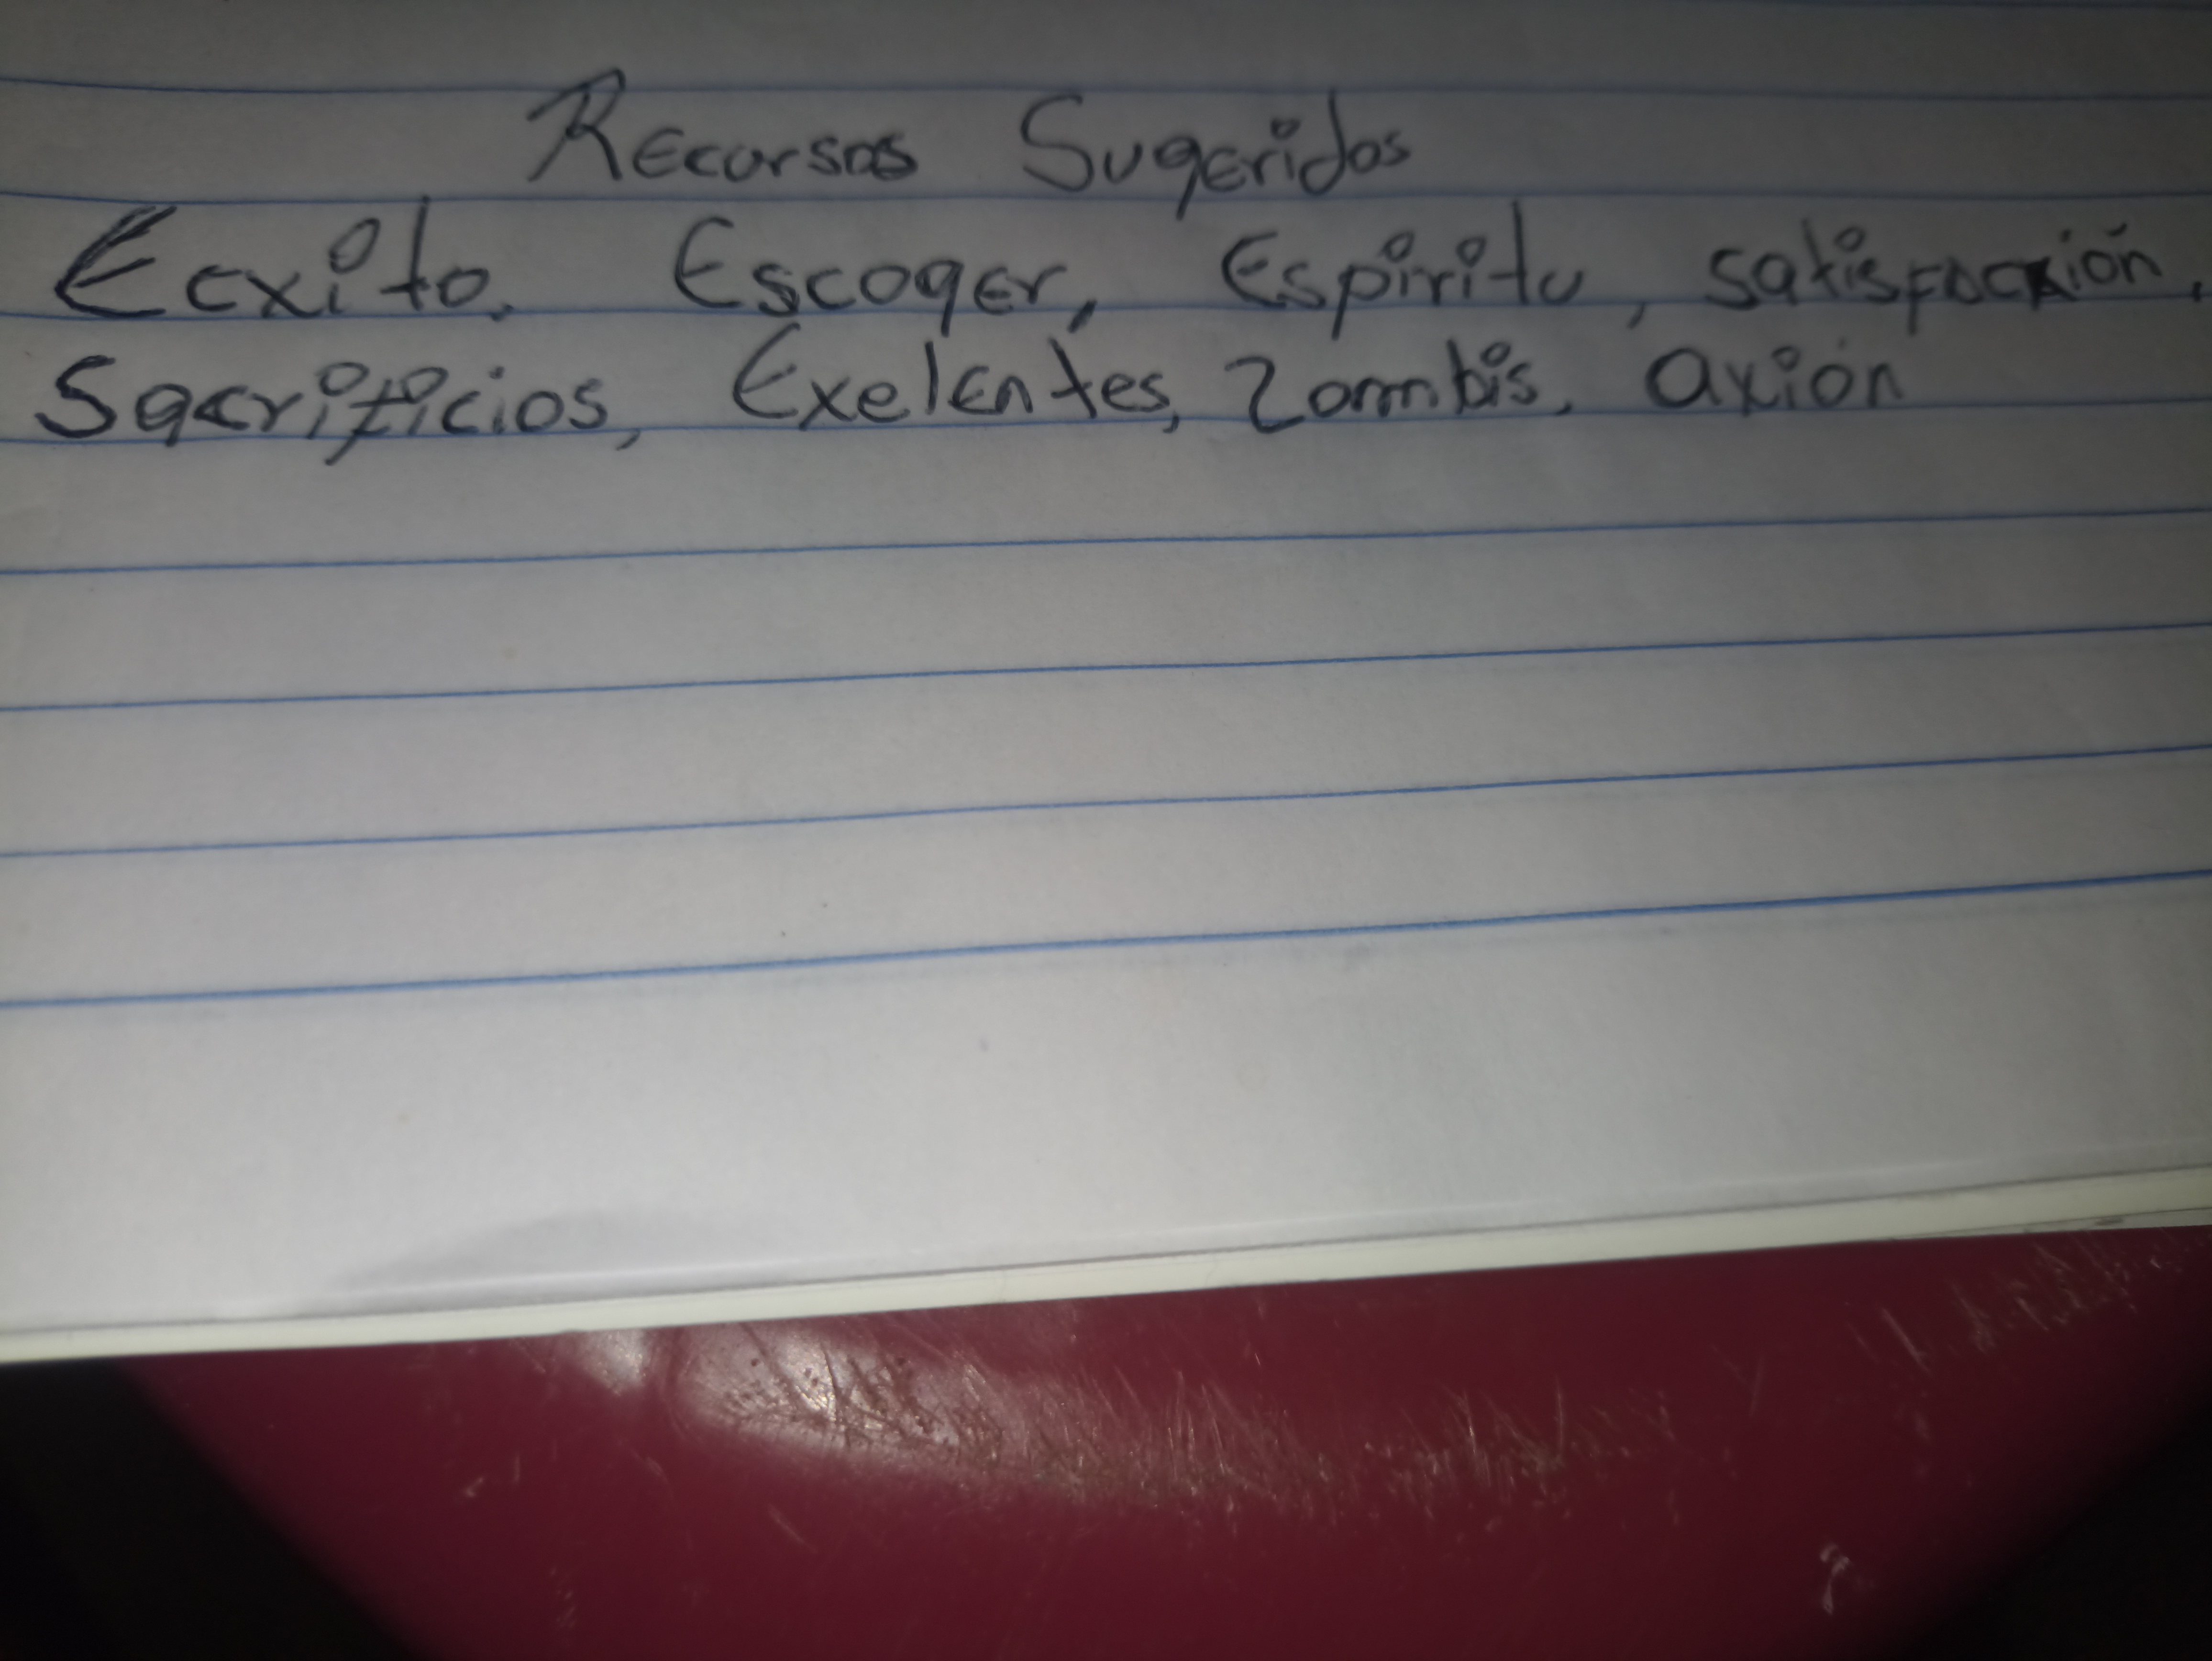 Recursos Sugeridos
Ecxito, Escoger, Espiritu, satisfacxión,
Sacrificios, Exelentes, Zombis, axión